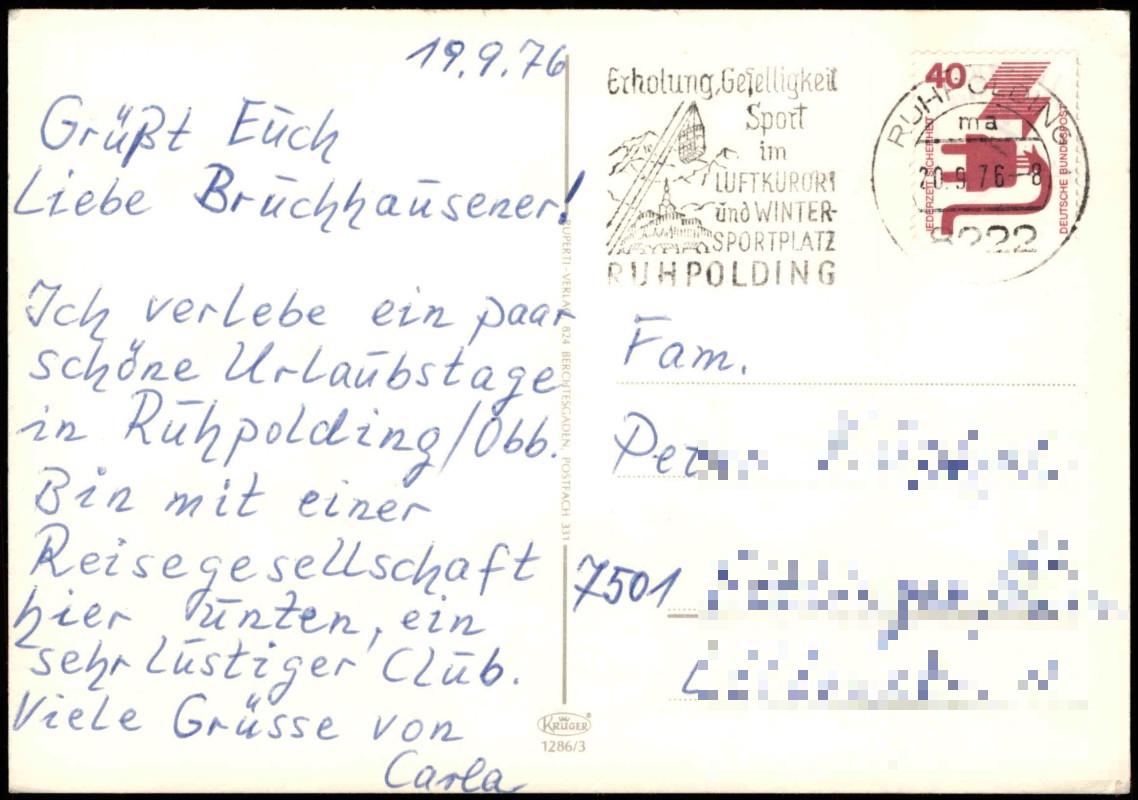 19.9.76
Grüßt Euch
Liebe Bruchhausener!
Ich verlebe ein paar
schöne Urlaubstage
in Ruhpolding/Obb.
Bin mit einer
Reisegesellschaft
hier unten, ein
sehr lustiger Club.
Viele Grüsse von
Carla
RUPERTI-VERLAG 824 BERCHTESGADEN, POSTFACH 331
KRÜGER
1286/3
Erholung, Geselligkeit
Sport
im
LUFTKURORT
und WINTER-
SPORTPLATZ
RUHPOLDING
40
JEDERZEIT SICHERHEIT
DEUTSCHE BUNDESPOST
RUHPOLDING
ma
20.9.76-8
8222
Fam.
7501